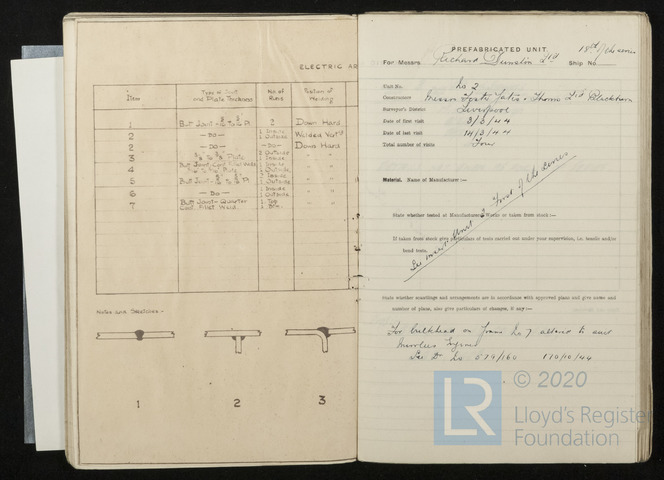 ELECTRIC AR
Item
Type of Joint and Plate Thickness
No. of Runs
Position of Welding
1
2
Down Hand
2
— Do —
1 Inside
1 Outside
Welded Vert
2
— Do —
— Do —
Down Hand
3
Plate
2 Outside
1 Inside
4
5
1 Inside
2 Outside
6
— Do —
1 Inside
1 Outside
7
Butt Joint - Quarter
1 Top
Cont. Fillet Weld.
Notes and Sketches -
1
2
3
PREFABRICATED UNIT
18th of the series
For Messrs Richard Dunston Ltd
Ship No
Unit No. No 2
Constructors Messrs Foster Yates & Thom Ltd Blackburn
Surveyor's District Liverpool
Date of first visit 3/3/44
Date of last visit 14/3/44
Total number of visits Four
Material. Name of Manufacturer:—
State whether tested at Manufacturers Works or taken from stock:—
If taken from stock give particulars of tests carried out under your supervision, i.e. tensile and/or
bend tests.
Unit 2 First of the series
State whether scantlings and arrangements are in accordance with approved plans and give name and
number of plans, also give particulars of changes, if any:—
For bulkhead on Frame No 7 altered to suit
Mirrlees Engines
See D No 679/160 170/10/44
© 2020
LR
Lloyd's Register
Foundation